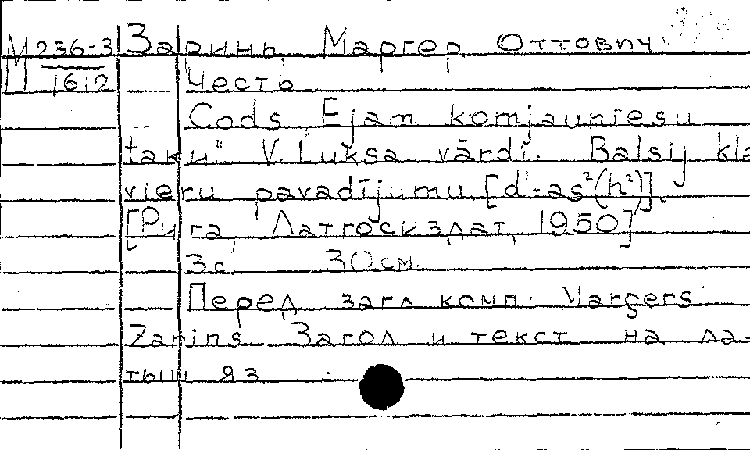 М 236-3 Заринь, Маргер Оттович.
1612 Честь
Cods Ejam komjauniešu
taku" V. Lukša vārdi. Balsij kla-
vieru pavadījumu. [d'-as²(h²)].
[Рига, Латгосиздат, 1950]
3 с. 30 см.
Перед загл. комп. Margers
Zariņs. Загол. и текст на ла-
тыш. яз.